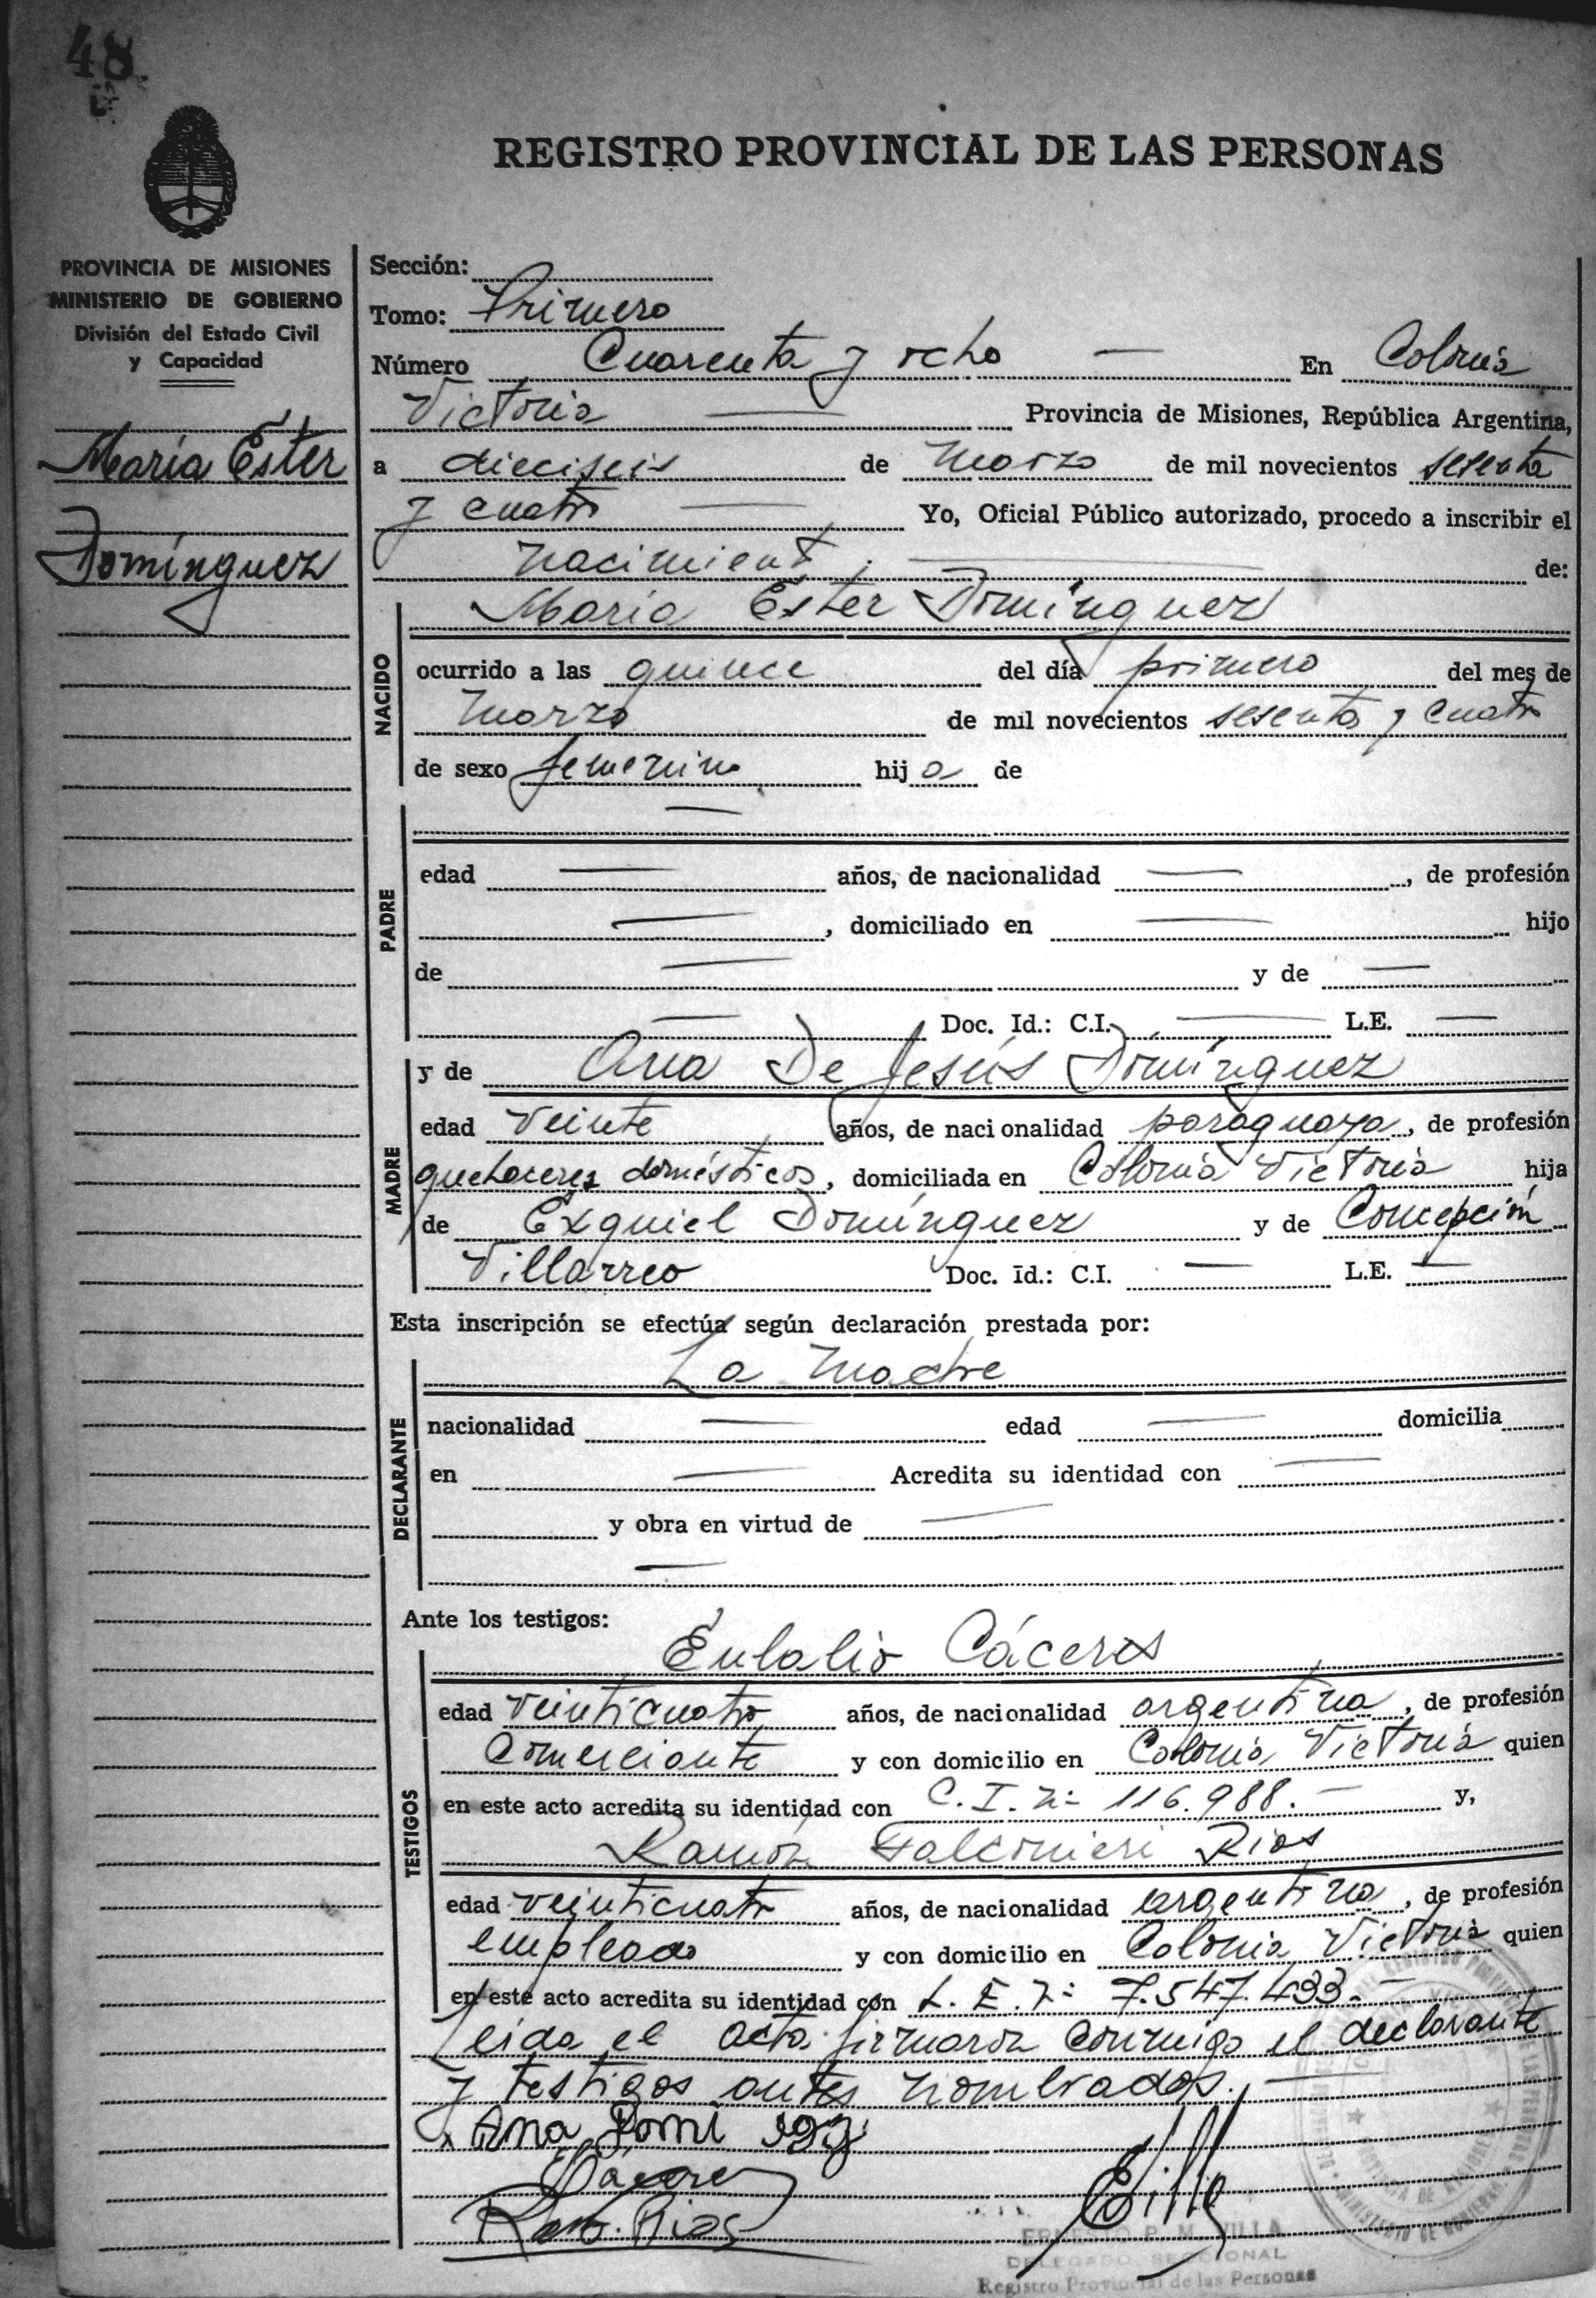 48
REGISTRO PROVINCIAL DE LAS PERSONAS
PROVINCIA DE MISIONES
MINISTERIO DE GOBIERNO
División del Estado Civil
y Capacidad
María Ester
Domínguez
Sección:
Tomo: Primero
Número Cuarenta y ocho — En Colonia
Victoria — Provincia de Misiones, República Argentina,
a dieciseis de Marzo de mil novecientos sesenta
y cuatro — Yo, Oficial Público autorizado, procedo a inscribir el
nacimiento — de:
María Ester Domínguez
NACIDO
ocurrido a las quince del día primero del mes de
Marzo de mil novecientos sesenta y cuatro
de sexo femenino hija de
PADRE
—
edad — años, de nacionalidad —, de profesión
—, domiciliado en — hijo
de — y de —
— Doc. Id.: C.I. — L.E. —
MADRE
y de Ana De Jesús Domínguez
edad veinte años, de nacionalidad paraguaya, de profesión
quehaceres domésticos, domiciliada en Colonia Victoria hija
de Exquiel Domínguez y de Concepción
Villarreo Doc. Id.: C.I. — L.E. —
Esta inscripción se efectúa según declaración prestada por:
DECLARANTE
La Madre
nacionalidad — edad — domicilia
en — Acredita su identidad con —
y obra en virtud de —
—
Ante los testigos:
TESTIGOS
Eulalio Cáceres
edad veinticuatro años, de nacionalidad argentina, de profesión
Comerciante y con domicilio en Colonia Victoria quien
en este acto acredita su identidad con C.I. Nº 116.988. — y,
Ramón Falconieri Rios
edad veinticuatro años, de nacionalidad argentina, de profesión
empleado y con domicilio en Colonia Victoria quien
en este acto acredita su identidad con L.E. Nº 7.547.433. —
Leida el acta firmaron conmigo el declarante
y testigos antes nombrados. —
Ana Domi
Cáceres
Rios
ERNESTO P. M. VILLA
DELEGADO SECCIONAL
Registro Provincial de las Personas